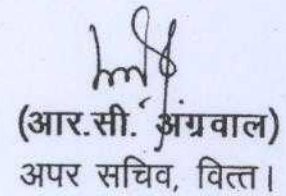 (आर.सी. अंग्रवाल)
अपर सचिव, वित्त।